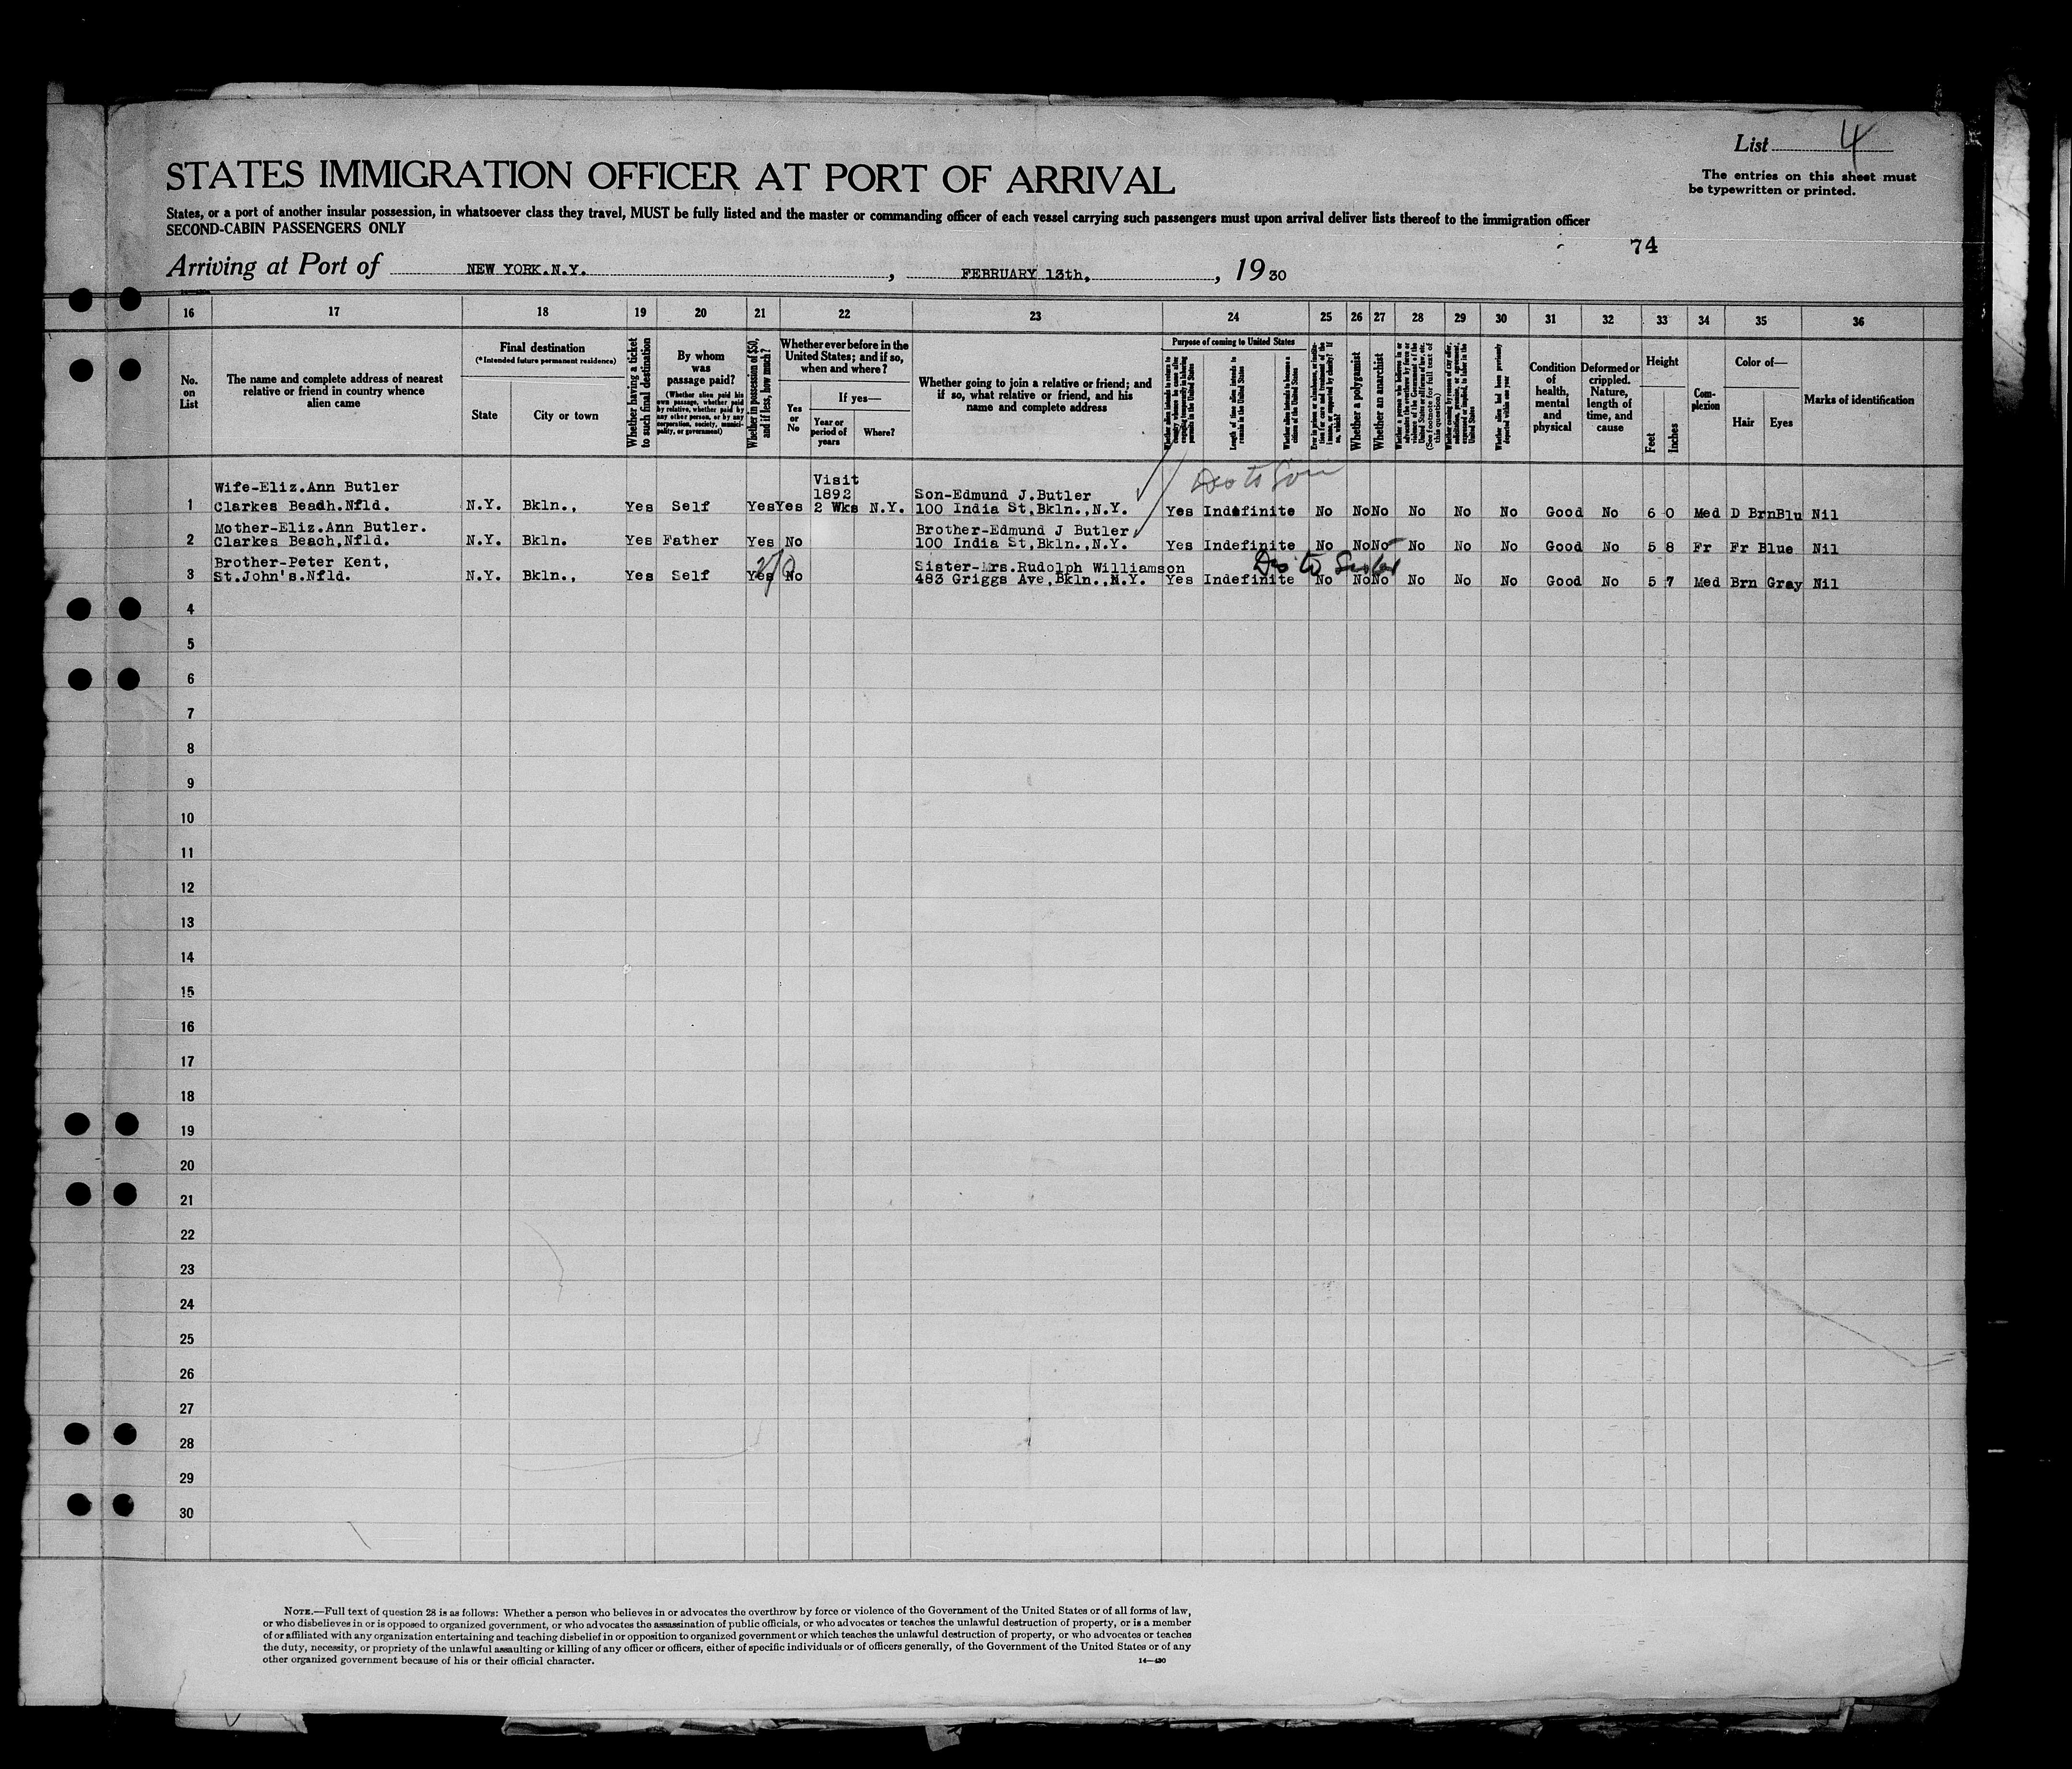 List 4
The entries on this sheet must
be typewritten or printed.
STATES IMMIGRATION OFFICER AT PORT OF ARRIVAL
States, or a port of another insular possession, in whatsoever class they travel, MUST be fully listed and the master or commanding officer of each vessel carrying such passengers must upon arrival deliver lists thereof to the immigration officer
SECOND-CABIN PASSENGERS ONLY
74
Arriving at Port of NEW YORK.N.Y. , FEBRUARY 13th. , 19 30
16 17 18 19 20 21 22 23 24 25 26 27 28 29 30 31 32 33 34 35 36
No.
on
List
The name and complete address of nearest
relative or friend in country whence
alien came
Final destination
(*Intended future permanent residence)
State
City or town
Whether having a ticket
to such final destination
By whom
was
passage paid?
(Whether alien paid his
own passage, whether paid
by relative, whether paid by
any other person, or by any
corporation, society, munici-
pality, or government)
Whether in possession of $50,
and if less, how much?
Whether ever before in the
United States; and if so,
when and where?
Yes
or
No
If yes—
Year or
period of
years
Where?
Whether going to join a relative or friend; and
if so, what relative or friend, and his
name and complete address
Purpose of coming to United States
Length of time alien intends to
remain in the United States
Whether alien intends to become a
citizen of the United States
Whether a polygamist
Whether an anarchist
Whether alien had been previously
deported within one year
Condition
of
health,
mental
and
physical
Deformed or
crippled.
Nature,
length of
time, and
cause
Height
Feet
Inches
Com-
plexion
Color of—
Hair
Eyes
Marks of identification
Dis to Son
1 Wife-Eliz.Ann Butler
Clarkes Beadh.Nfld. N.Y. Bkln., Yes Self Yes Yes Visit
1892
2 Wks N.Y. Son-Edmund J.Butler
100 India St,Bkln.,N.Y. Yes Indefinite No No No No No No Good No 6 0 Med D Brn Blu Nil
2 Mother-Eliz.Ann Butler.
Clarkes Beach,Nfld. N.Y. Bkln. Yes Father Yes No Brother-Edmund J Butler
100 India St,Bkln.,N.Y. Yes Indefinite No No No No No No Good No 5 8 Fr Fr Blue Nil
Dis to Sister
3 Brother-Peter Kent,
St.John's.Nfld. N.Y. Bkln., Yes Self Yes No Sister-Mrs.Rudolph Williamson
483 Griggs Ave,Bkln.,N.Y. Yes Indefinite No No No No No No Good No 5 7 Med Brn Gray Nil
4
5
6
7
8
9
10
11
12
13
14
15
16
17
18
19
20
21
22
23
24
25
26
27
28
29
30
NOTE.—Full text of question 28 is as follows: Whether a person who believes in or advocates the overthrow by force or violence of the Government of the United States or of all forms of law,
or who disbelieves in or is opposed to organized government, or who advocates the assassination of public officials, or who advocates or teaches the unlawful destruction of property, or is a member
of or affiliated with any organization entertaining and teaching disbelief in or opposition to organized government or which teaches the unlawful destruction of property, or who advocates or teaches
the duty, necessity, or propriety of the unlawful assaulting or killing of any officer or officers, either of specific individuals or of officers generally, of the Government of the United States or of any
other organized government because of his or their official character.
14—430